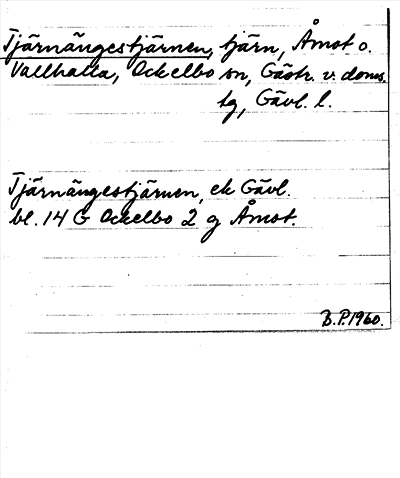 Tjärnängestjärnen, tjärn, Åmot o.
Vallhalla, Ockelbo sn, Gästr. v. doms.
tg, Gävl. l.
Tjärnängestjärnen, ek Gävl.
bl. 14 G Ockelbo 2 g Åmot.
B.P. 1960.